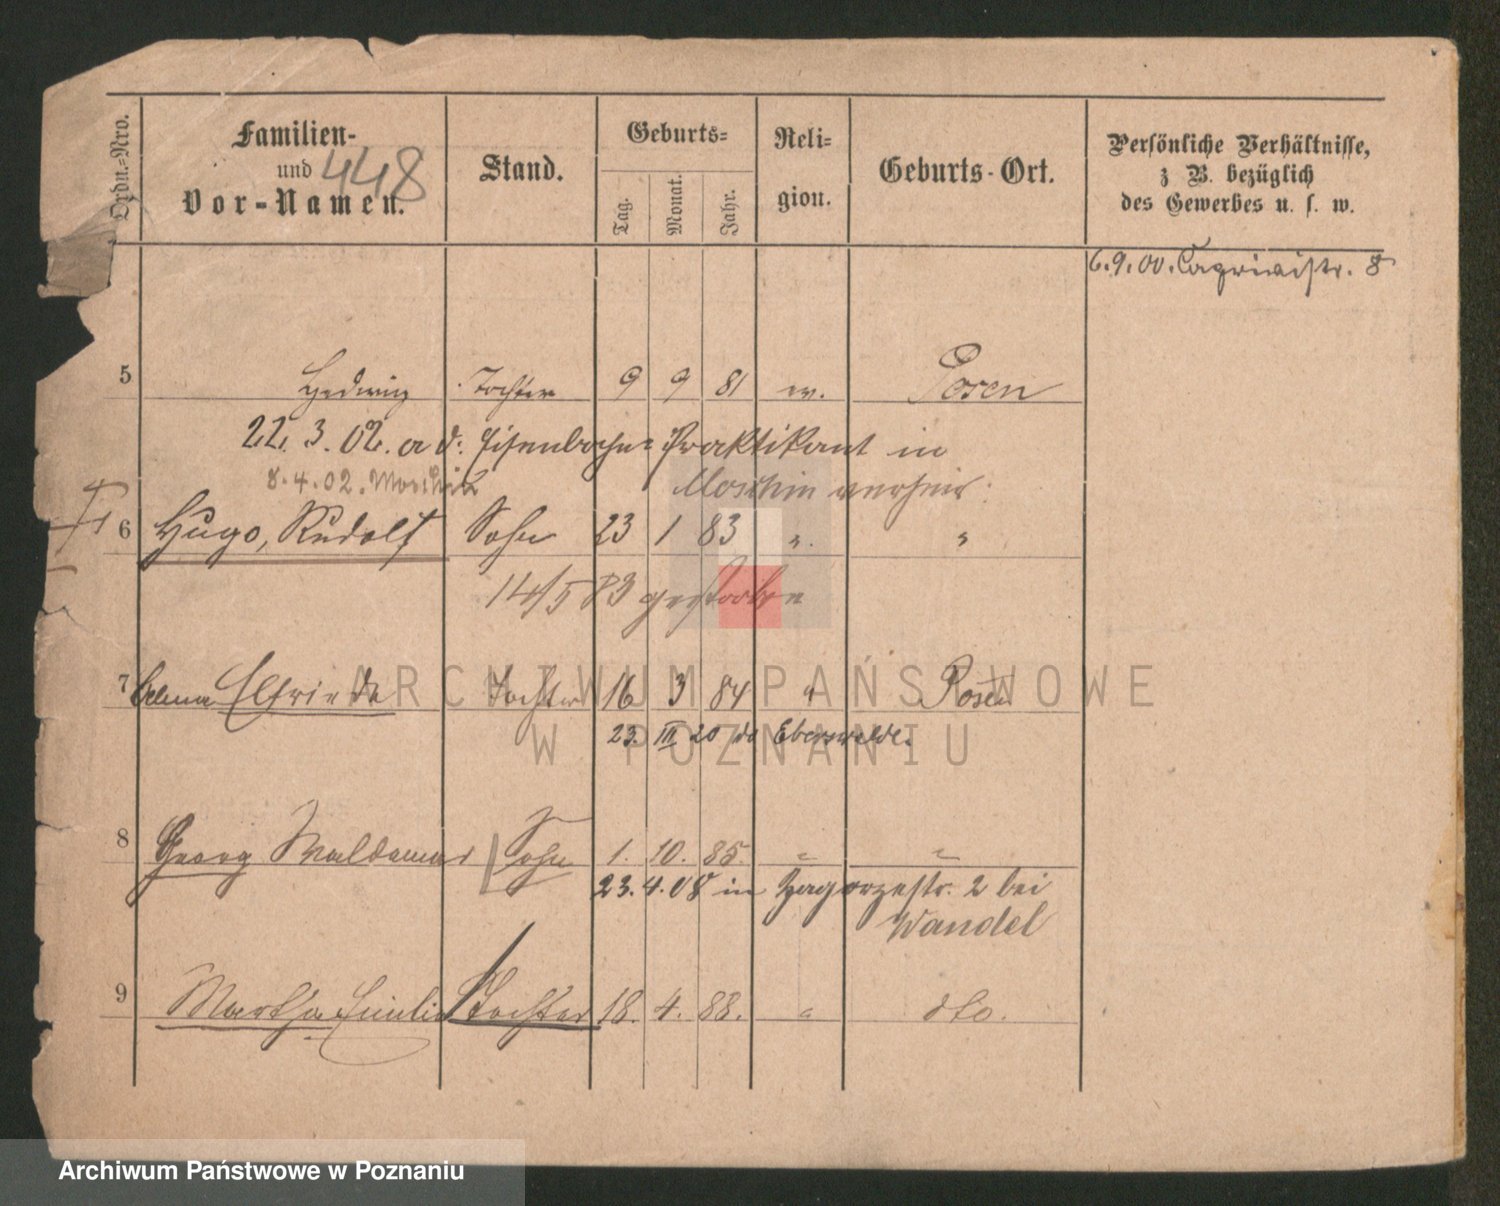 Ordn.-Nro.
Familien-
und
Vor-Namen.
448
Stand.
Geburts-
Tag.
Monat.
Jahr.
Reli-
gion.
Geburts-Ort.
Persönliche Verhältnisse,
z B. bezüglich
des Gewerbes u. s. w.
6.9.00. 8
5 Hedwig Tochter 9 9 81 ev. Posen
22. 3. 02. a d. Eisenbahn-Praktikant in
8.4.02. Moschin
Moschin verheir.
6 Hugo, Rudolf Sohn 23 1 83 ". "
14/5 83 gestorben
7 Elfriede Tochter 16 3 84 " Posen
23. III 20 Eberswalde.
8 Georg Waldemar Sohn 1. 10. 85. " "
23.4.08 in Zagorzestr. 2 bei
Wandel
9 Martha Emilie Tochter 18. 4. 88. " dto.
ARCHIWUM PAŃSTWOWE
W POZNANIU
Archiwum Państwowe w Poznaniu